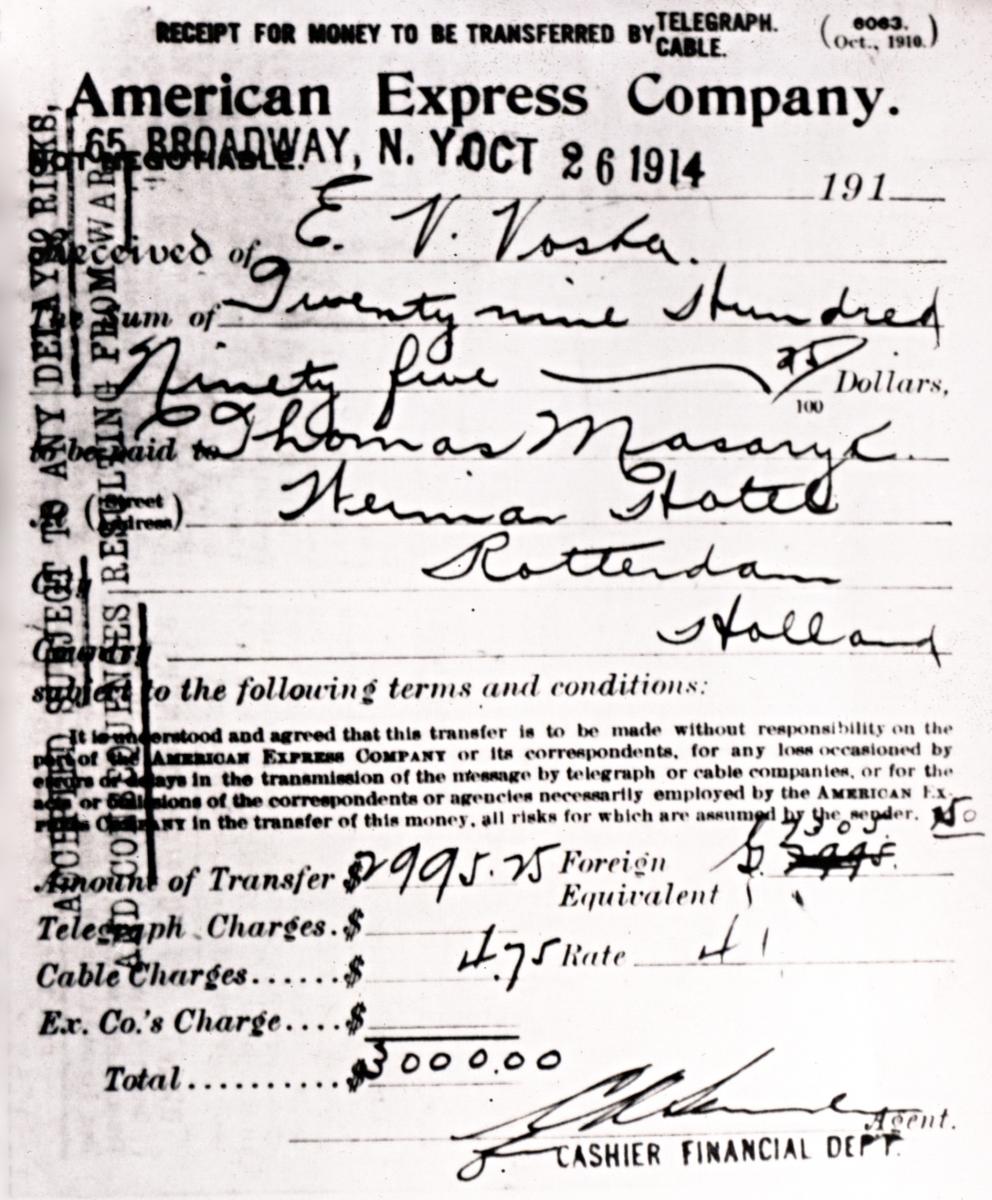 RECEIPT FOR MONEY TO BE TRANSFERRED BY TELEGRAPH. CABLE.
(6063. Oct., 1910.)
American Express Company.
65 BROADWAY, N. Y. OCT 26 1914
NOT NEGOTIABLE. 191
Received of E. V. Voska.
The Sum of Twenty nine Hundred
Ninety five 25/100 Dollars,
to be paid to Thomas Masaryk.
(Street Address) Weimar Hotel
City Rotterdam
Country Holland
subject to the following terms and conditions:
It is understood and agreed that this transfer is to be made without responsibility on the
part of the AMERICAN EXPRESS COMPANY or its correspondents, for any loss occasioned by
errors or delays in the transmission of the message by telegraph or cable companies, or for the
acts or omissions of the correspondents or agencies necessarily employed by the AMERICAN EX-
PRESS COMPANY in the transfer of this money, all risks for which are assumed by the sender.
Amount of Transfer $2995.25 Foreign Equivalent 7305.50
Telegraph Charges. $
Cable Charges...... $ 4.75 Rate 41
Ex. Co.'s Charge.... $
Total.......... $3000.00
Agent.
CASHIER FINANCIAL DEPT.
ACCEPTED SUBJECT TO ANY DELAYS, RISKS,
AND CONSEQUENCES RESULTING FROM WAR